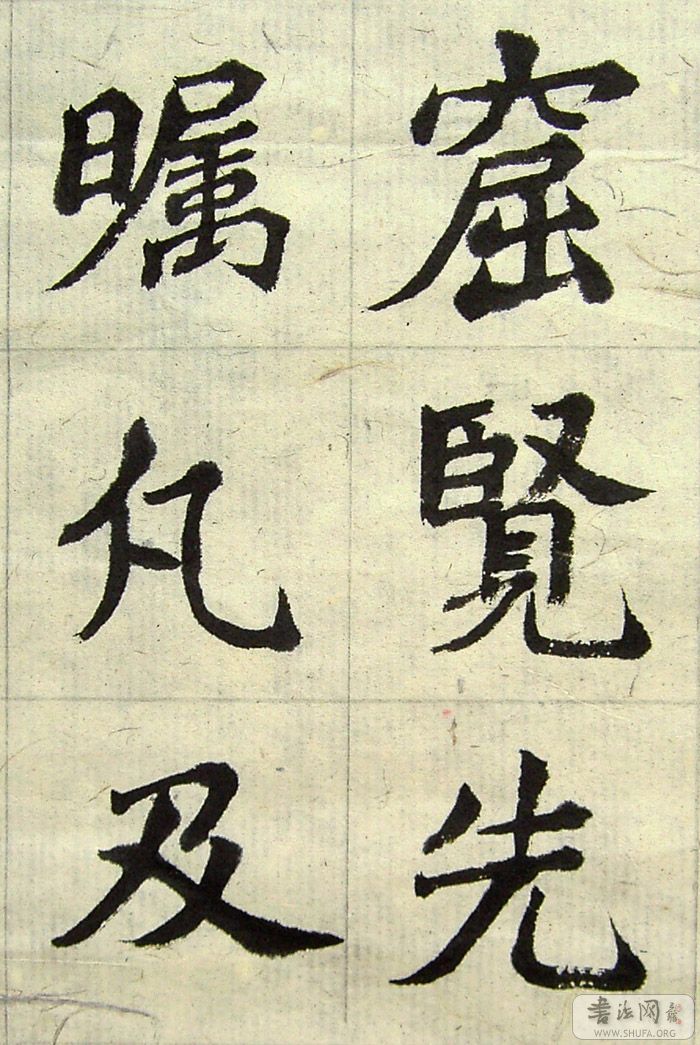 窟覽先
瞩凡及
書法网
WWW.SHUFA.ORG